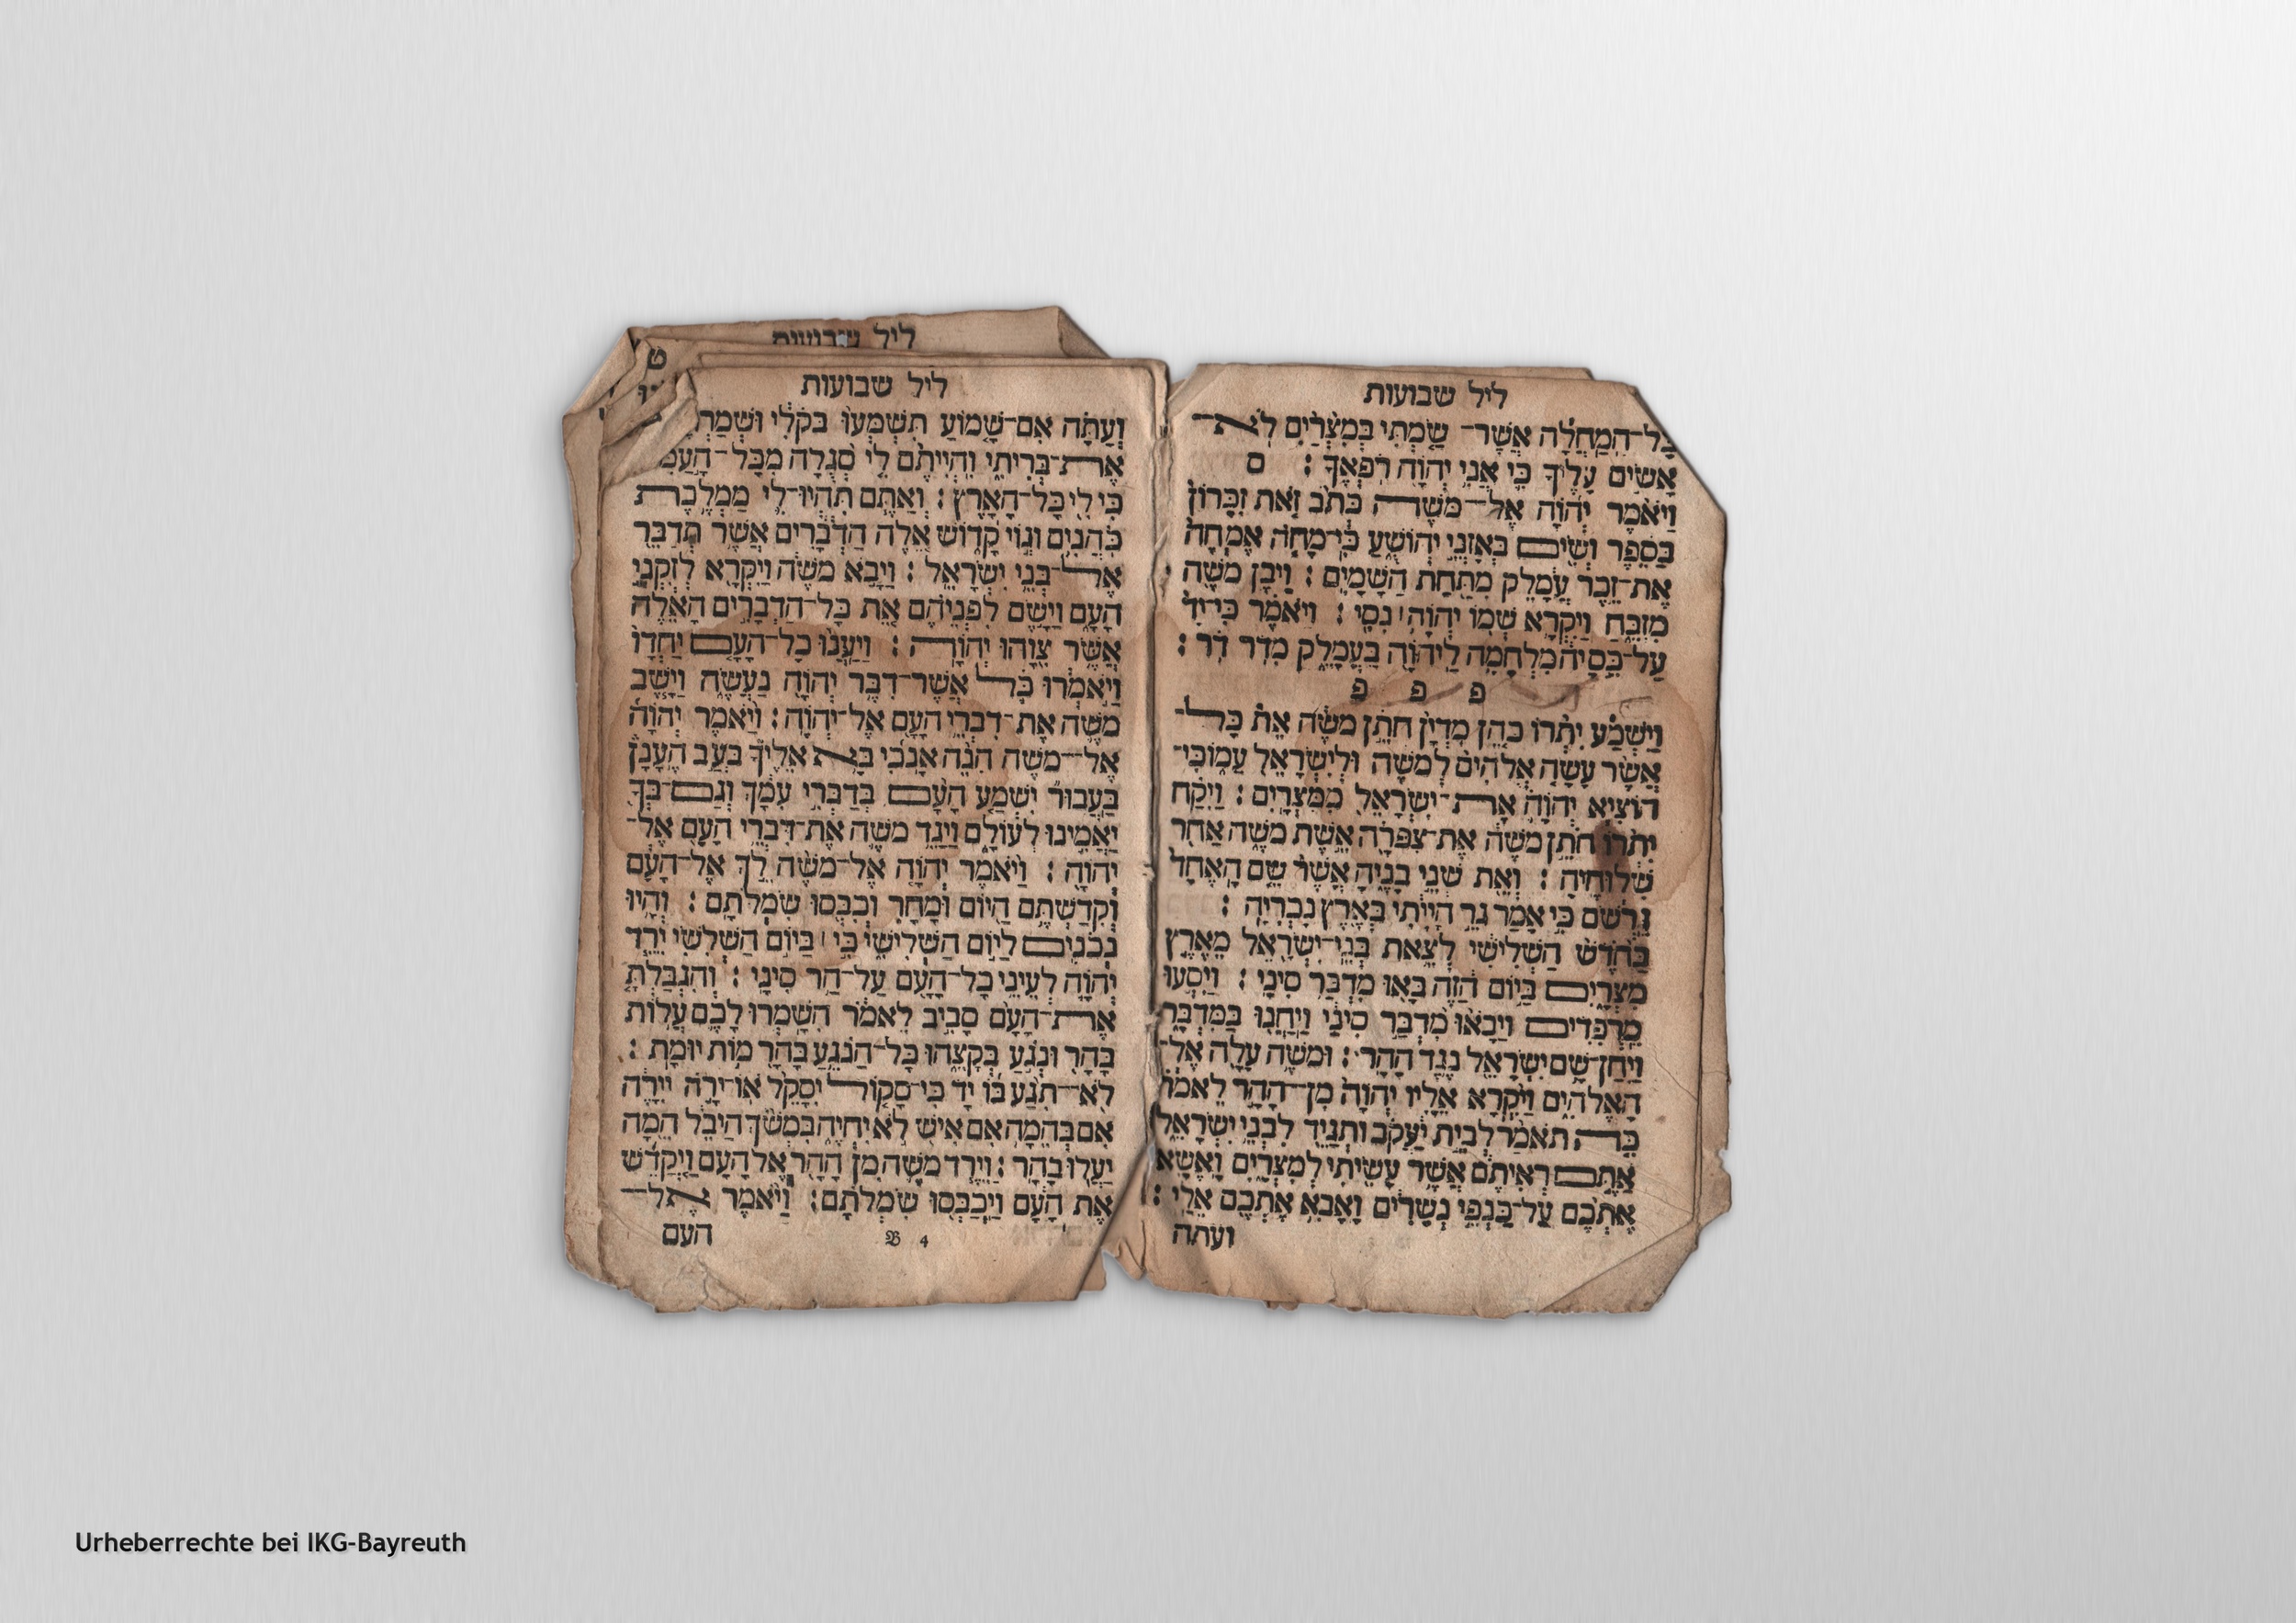 ליל שבועות
כָּל־הַמַּחֲלָה אֲשֶׁר־ שַׂמְתִּי בְמִצְרַיִם לֹא־
אָשִׂים עָלֶיךָ כִּי אֲנִי יְהוָה רֹפְאֶךָ : ס
וַיֹּאמֶר יְהוָה אֶל־מֹשֶׁה כְּתֹב זֹאת זִכָּרוֹן
בַּסֵּפֶר וְשִׂים בְּאָזְנֵי יְהוֹשֻׁעַ כִּי־מָחֹה אֶמְחֶה
אֶת־זֵכֶר עֲמָלֵק מִתַּחַת הַשָּׁמָיִם : וַיִּבֶן מֹשֶׁה
מִזְבֵּחַ וַיִּקְרָא שְׁמוֹ יְהוָה׀ נִסִּי : וַיֹּאמֶר כִּי־יָד
עַל־כֵּס יָהּ מִלְחָמָה לַיהוָה בַּעֲמָלֵק מִדֹּר דֹּר :
פ פ פ
וַיִּשְׁמַע יִתְרוֹ כֹהֵן מִדְיָן חֹתֵן מֹשֶׁה אֵת כָּל־
אֲשֶׁר עָשָׂה אֱלֹהִים לְמֹשֶׁה וּלְיִשְׂרָאֵל עַמּוֹ כִּי־
הוֹצִיא יְהוָה אֶת־יִשְׂרָאֵל מִמִּצְרָיִם : וַיִּקַּח
יִתְרוֹ חֹתֵן מֹשֶׁה אֶת־צִפֹּרָה אֵשֶׁת מֹשֶׁה אַחַר
שִׁלּוּחֶיהָ : וְאֵת שְׁנֵי בָנֶיהָ אֲשֶׁר שֵׁם הָאֶחָד
גֵּרְשֹׁם כִּי אָמַר גֵּר הָיִיתִי בְּאֶרֶץ נָכְרִיָּה :
בַּחֹדֶשׁ הַשְּׁלִישִׁי לְצֵאת בְּנֵי־יִשְׂרָאֵל מֵאֶרֶץ
מִצְרָיִם בַּיּוֹם הַזֶּה בָּאוּ מִדְבַּר סִינָי : וַיִּסְעוּ
מֵרְפִדִים וַיָּבֹאוּ מִדְבַּר סִינַי וַיַּחֲנוּ בַּמִּדְבָּר
וַיִּחַן־שָׁם יִשְׂרָאֵל נֶגֶד הָהָר : וּמֹשֶׁה עָלָה אֶל־
הָאֱלֹהִים וַיִּקְרָא אֵלָיו יְהוָה מִן־הָהָר לֵאמֹר
כֹּה תֹאמַר לְבֵית יַעֲקֹב וְתַגֵּיד לִבְנֵי יִשְׂרָאֵל
אַתֶּם רְאִיתֶם אֲשֶׁר עָשִׂיתִי לְמִצְרָיִם וָאֶשָּׂא
אֶתְכֶם עַל־כַּנְפֵי נְשָׁרִים וָאָבִא אֶתְכֶם אֵלָי :
ועתה
ליל שבועות
ליל שבועות
וְעַתָּה אִם־שָׁמוֹעַ תִּשְׁמְעוּ בְּקֹלִי וּשְׁמַרְתֶּ
אֶת־בְּרִיתִי וִהְיִיתֶם לִי סְגֻלָּה מִכָּל־הָעַמִּ
כִּי לִי כָּל־הָאָרֶץ : וְאַתֶּם תִּהְיוּ־לִי מַמְלֶכֶת
כֹּהֲנִים וְגוֹי קָדוֹשׁ אֵלֶּה הַדְּבָרִים אֲשֶׁר תְּדַבֵּר
אֶל־בְּנֵי יִשְׂרָאֵל : וַיָּבֹא מֹשֶׁה וַיִּקְרָא לְזִקְנֵי
הָעָם וַיָּשֶׂם לִפְנֵיהֶם אֵת כָּל־הַדְּבָרִים הָאֵלֶּה
אֲשֶׁר צִוָּהוּ יְהוָה : וַיַּעֲנוּ כָל־הָעָם יַחְדָּו
וַיֹּאמְרוּ כֹּל אֲשֶׁר־דִּבֶּר יְהוָה נַעֲשֶׂה וַיָּשֶׁב
מֹשֶׁה אֶת־דִּבְרֵי הָעָם אֶל־יְהוָה : וַיֹּאמֶר יְהוָה
אֶל־מֹשֶׁה הִנֵּה אָנֹכִי בָּא אֵלֶיךָ בְּעַב הֶעָנָן
בַּעֲבוּר יִשְׁמַע הָעָם בְּדַבְּרִי עִמָּךְ וְגַם־בְּךָ
יַאֲמִינוּ לְעוֹלָם וַיַּגֵּד מֹשֶׁה אֶת־דִּבְרֵי הָעָם אֶל־
יְהוָה : וַיֹּאמֶר יְהוָה אֶל־מֹשֶׁה לֵךְ אֶל־הָעָם
וְקִדַּשְׁתָּם הַיּוֹם וּמָחָר וְכִבְּסוּ שִׂמְלֹתָם : וְהָיוּ
נְכֹנִים לַיּוֹם הַשְּׁלִישִׁי כִּי׀ בַּיּוֹם הַשְּׁלִשִׁי יֵרֵד
יְהוָה לְעֵינֵי כָל־הָעָם עַל־הַר סִינָי : וְהִגְבַּלְתָּ
אֶת־הָעָם סָבִיב לֵאמֹר הִשָּׁמְרוּ לָכֶם עֲלוֹת
בָּהָר וּנְגֹעַ בְּקָצֵהוּ כָּל־הַנֹּגֵעַ בָּהָר מוֹת יוּמָת :
לֹא־תִגַּע בּוֹ יָד כִּי־סָקוֹל יִסָּקֵל אוֹ־יָרֹה יִיָּרֶה
אִם בְּהֵמָה אִם אִישׁ לֹא יִחְיֶה בִּמְשֹׁךְ הַיֹּבֵל הֵמָּה
יַעֲלוּ בָהָר : וַיֵּרֶד מֹשֶׁה מִן הָהָר אֶל הָעָם וַיְקַדֵּשׁ
אֶת הָעָם וַיְכַבְּסוּ שִׂמְלֹתָם : וַיֹּאמֶר אֶל־
B 4 העם
Urheberrechte bei IKG-Bayreuth